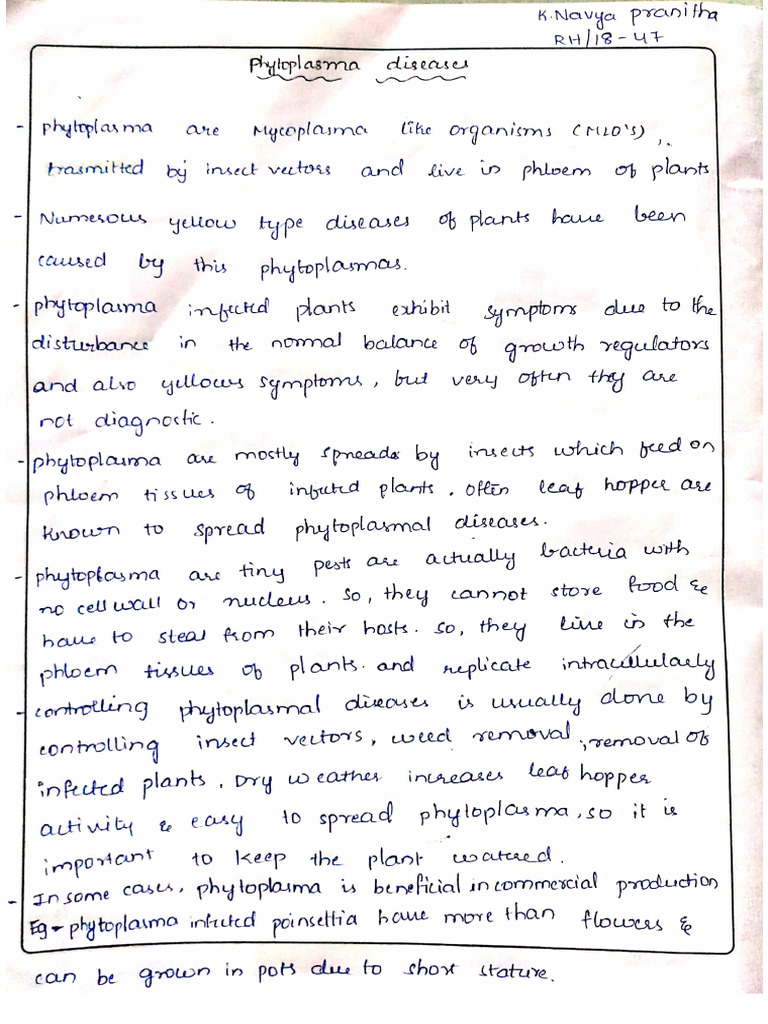 K.Navya pranitha
RH/18-47
Phytoplasma diseases
- phytoplasma are Mycoplasma like organisms (MLO's),
trasmitted by insect vectors and live in phloem of plants
- Numerous yellow type diseases of plants have been
caused by this phytoplasmas.
- phytoplasma infected plants exhibit symptoms due to the
disturbance in the normal balance of growth regulators
and also yellows symptoms, but very often they are
not diagnostic.
- phytoplasma are mostly spreads by insects which feed on
phloem tissues of infected plants. often leaf hopper are
known to spread phytoplasmal diseases.
- phytoplasma are tiny pests are actually bacteria with
no cell wall or nucleus. So, they cannot store food &
have to steal from their hosts. so, they live in the
phloem tissues of plants. and replicate intracellularly
- controlling phytoplasmal diseases is usually done by
controlling insect vectors, weed removal, removal of
infected plants. Dry weather increases leaf hopper
activity & easy to spread phytoplasma, so it is
important to keep the plant watered.
- In some cases, phytoplasma is beneficial in commercial production
Eg - phytoplasma infected poinsettia have more than flowers &
can be grown in pots due to short stature.